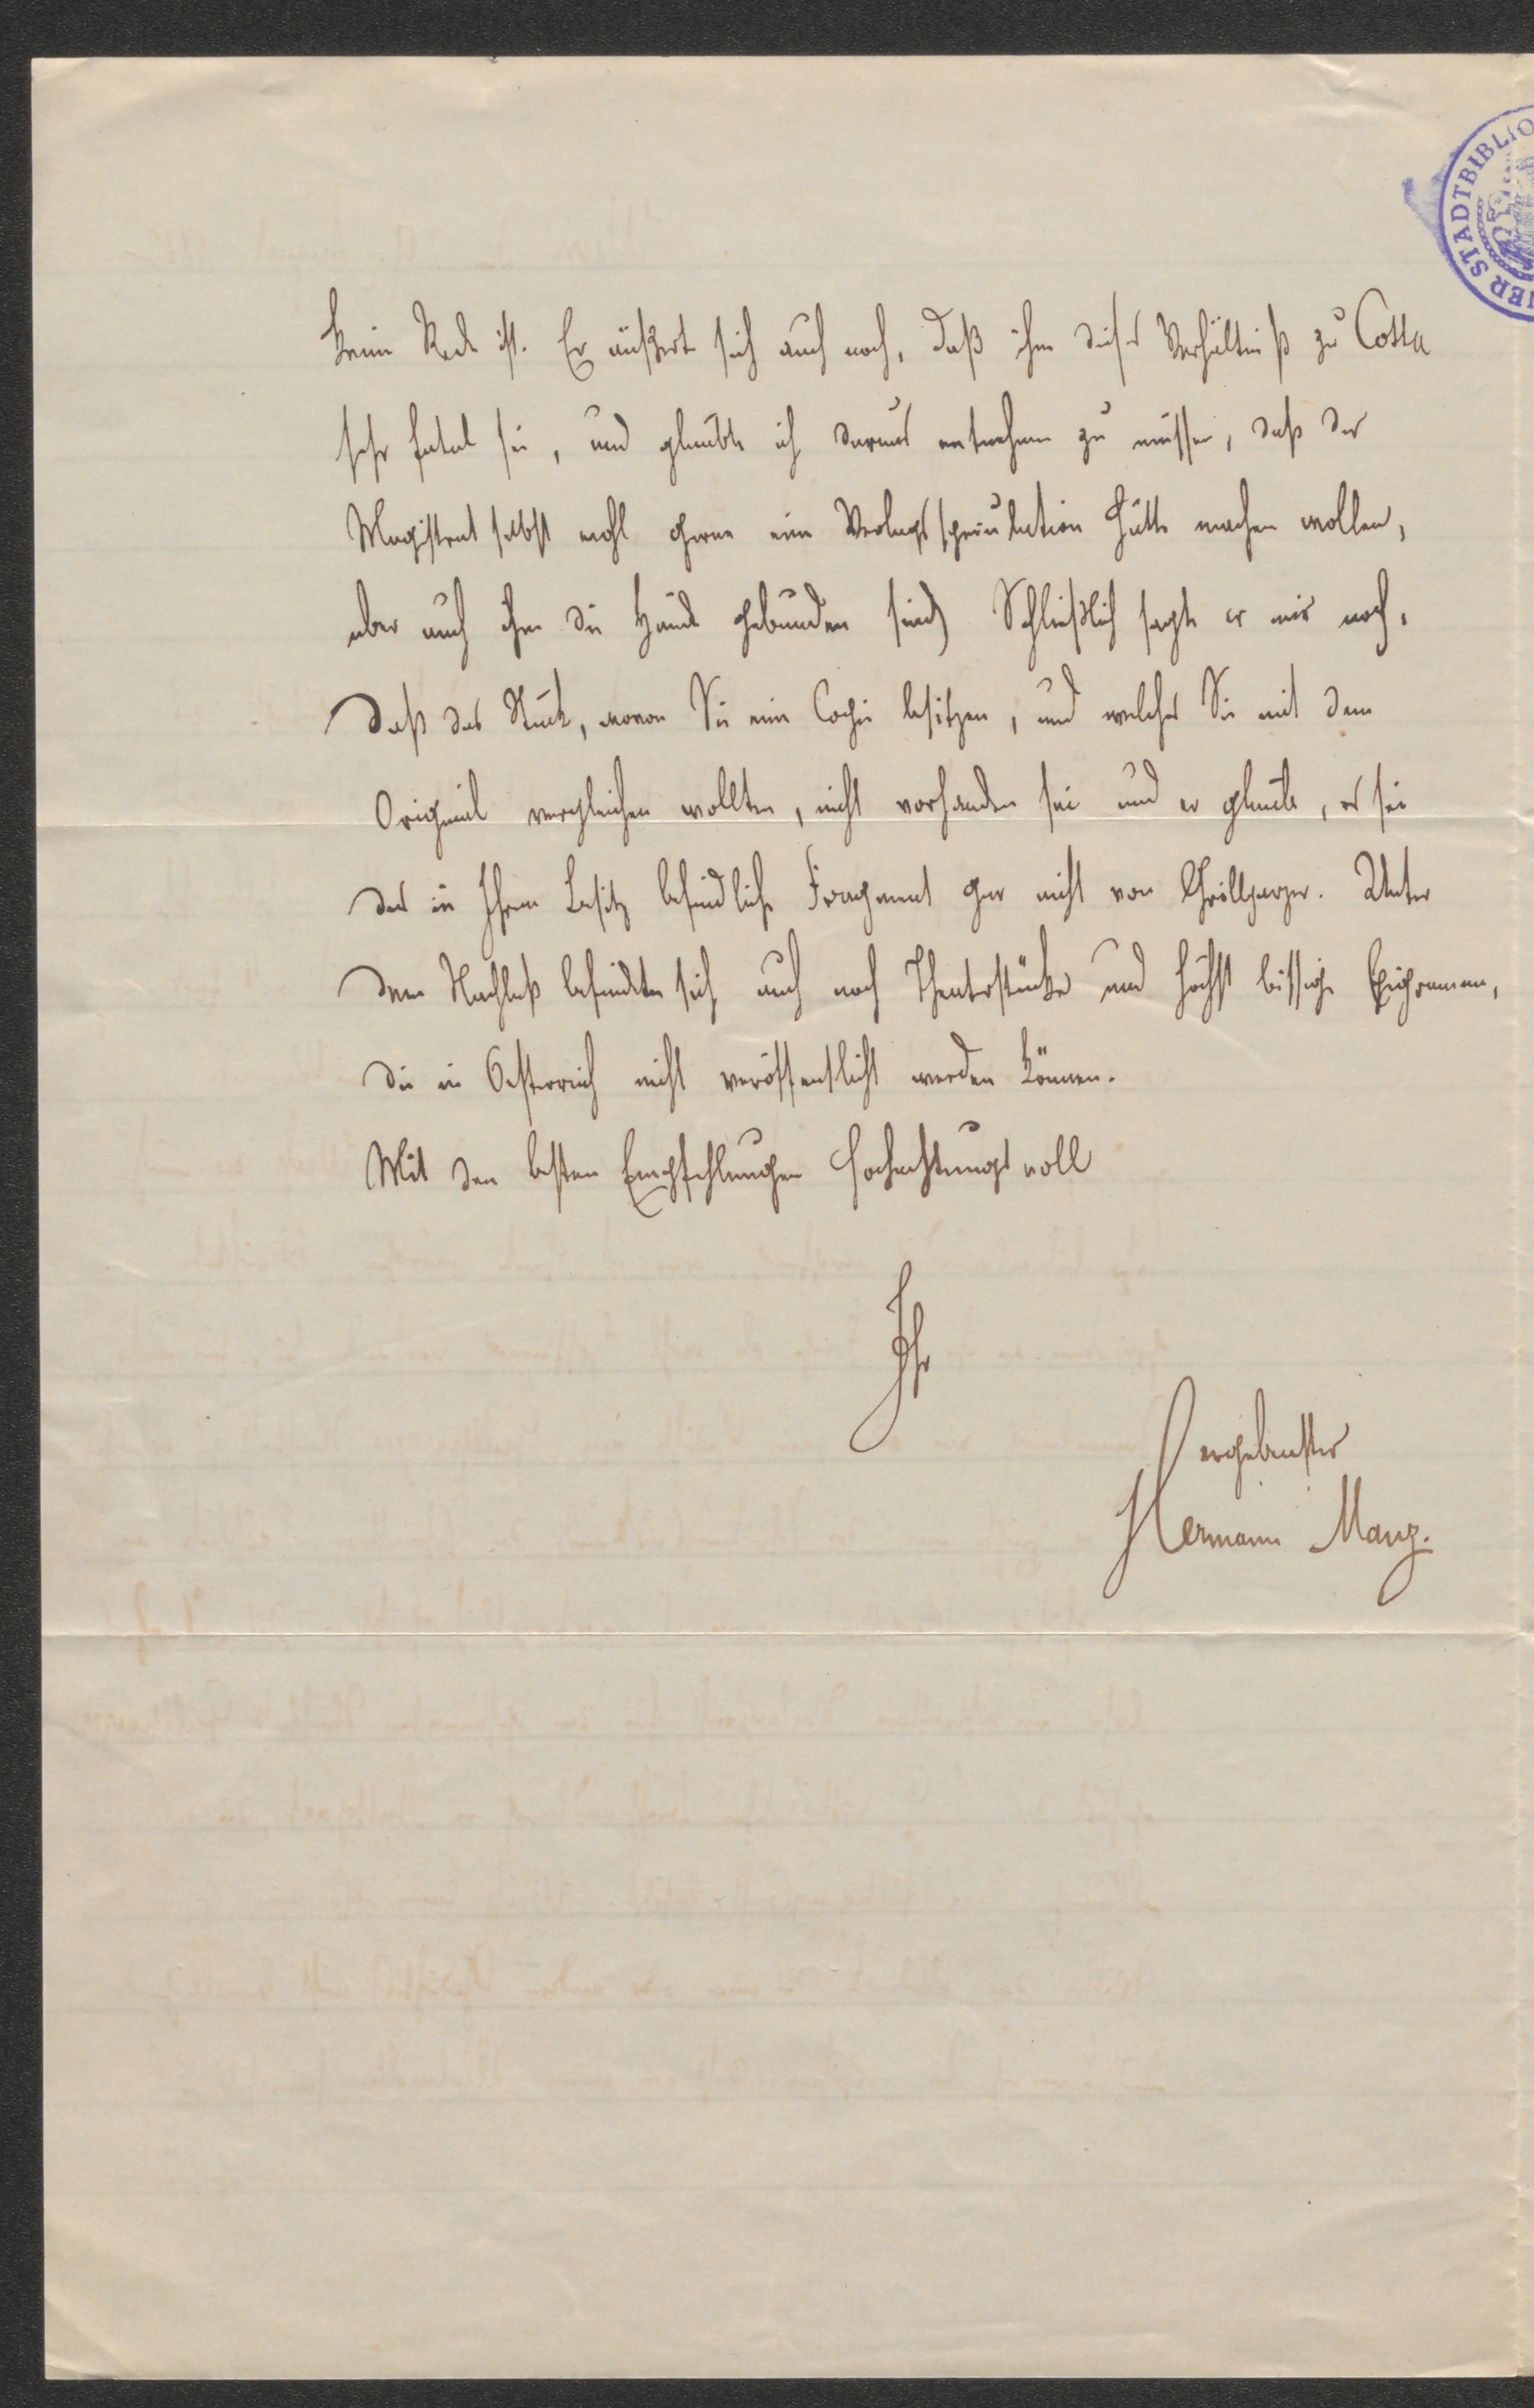 keine Rede ist. Er äußerte sich auch noch, daß ihm dieses Verhältniß zu Cotta
sehr fatal sei, und glaubte ich daraus entnehmen zu müssen, daß der
Magistrat selbst wohl gerne eine Verlagsspeculation hätte machen wollen,
aber auch ihm die Hände gebunden sind) Schließlich sagte er mir noch,
daß das Stück, wovon Sie eine Copie besitzen, und welches Sie mit dem
Original vergleichen wollten, nicht vorhanden sei und er glaube, es sei
das in Ihrem Besitz befindliche Fragment gar nicht von Grillparzer. Unter
dem Nachlaß befindeten sich auch noch Theaterstücke und höchst bissige Epigramme,
die in Oesterreich nicht veröffentlicht werden können.
Mit den besten Empfehlungen hochachtungsvoll
Ihr
ergebenster
Hermann Manz.
ER STADTBIBLIO